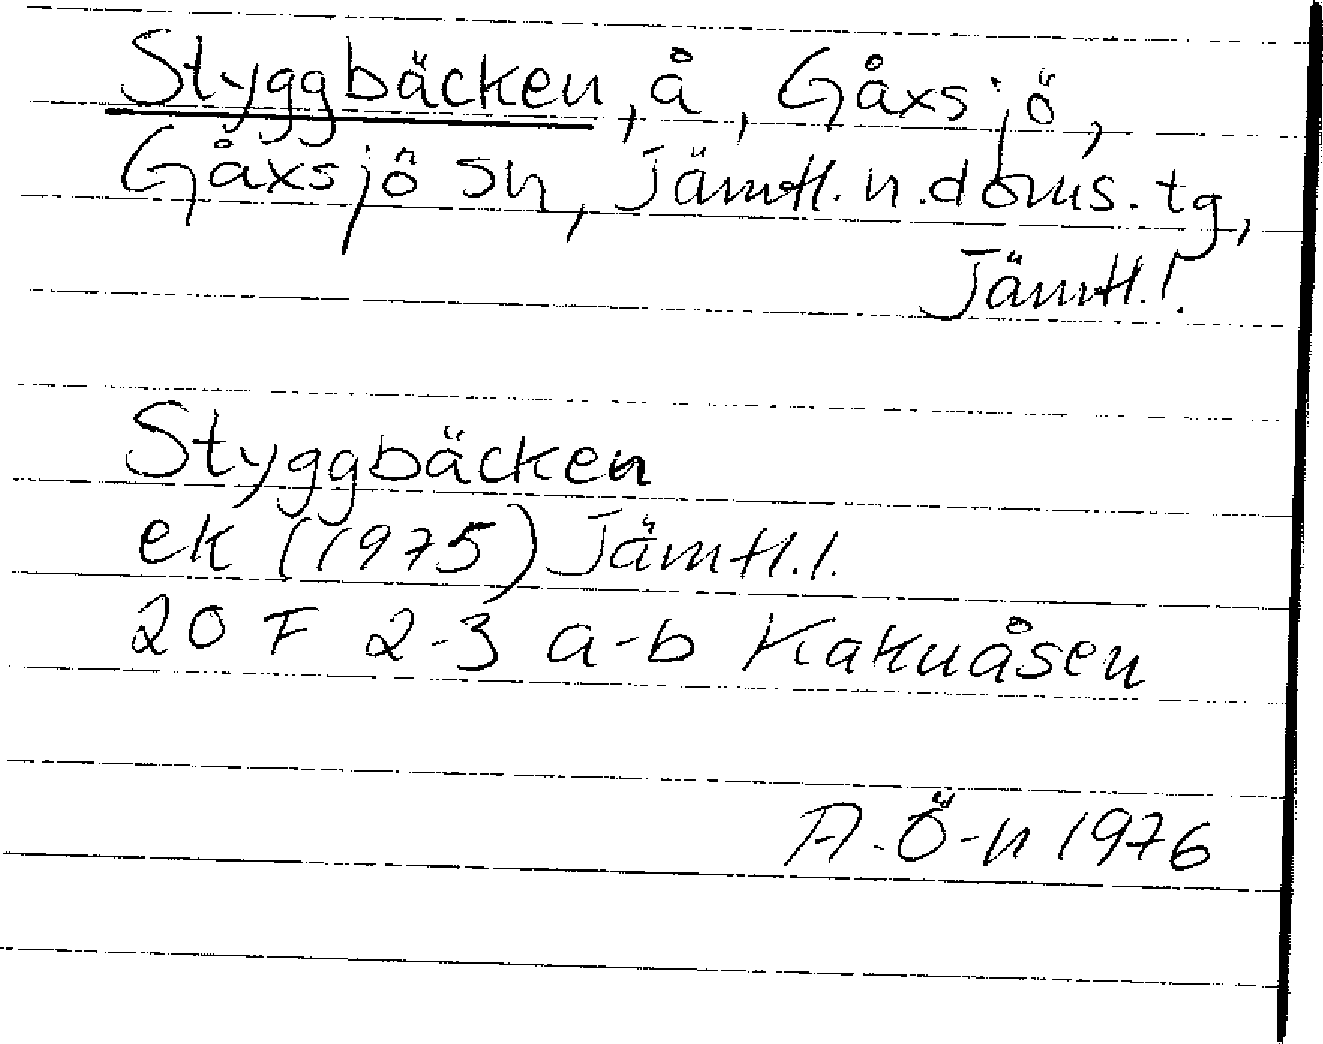 Styggbäcken, å, Gåxsjö,
Gåxsjö sn, Jämtl. n. doms. tg,
Jämtl. l.
Styggbäcken
ek (1975) Jämtl. l.
20 F 2-3 a-b Kakuåsen
A. Ö-n 1976